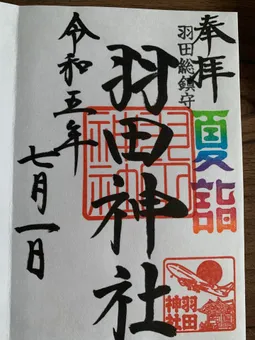 奉拝
羽田総鎮守
夏詣
羽田神社
羽田神社
令和五年
七月一日
羽田
神社